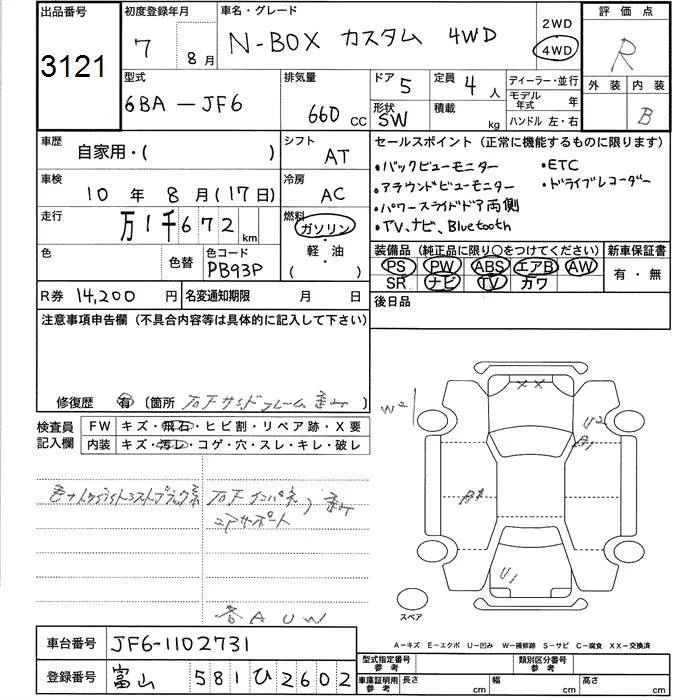 出品番号
3121
初度登録年月
7 8月
車名・グレード
N-BOX カスタム 4WD
2WD
4WD
評価点
R
外装 内装
B
型式
6BA-JF6
排気量
660 cc
ドア 5
定員 4 人
形状 SW
積載 kg
ディーラー・並行
モデル年式 年
ハンドル 左・右
車歴
自家用・( )
シフト
AT
車検
10年8月(17日)
冷房
AC
走行
万1千672km
燃料
ガソリン・軽油
( )
色
色替
色コード
PB93P
セールスポイント(正常に機能するものに限ります)
・バックビューモニター ・ETC
・アラウンドビューモニター ・ドライブレコーダー
・パワースライドドア両側
・TV、ナビ、Bluetooth
装備品(純正品に限り○をつけてください)
PS PW ABS エアB AW
SR ナビ TV カワ
新車保証書
有・無
R券 14,200円
名変通知期限 月 日
後日品
注意事項申告欄(不具合内容等は具体的に記入して下さい)
修復歴 有 (箇所 )
検査員記入欄
FW キズ・飛石・ヒビ割・リペア跡・X要
内装 キズ・汚レ・コゲ・穴・スレ・キレ・破レ
コアサポート
各AUW
W=1
XX
U2
A1
U1
スペア
A-キズ E-エクボ U-凹み W-補修跡 S-サビ C-腐食 XX-交換済
車台番号
JF6-1102731
登録番号
富山 581 ひ 2602
型式指定番号 参考
類別区分番号 参考
車庫証明用参考 長さ cm 幅 cm 高さ cm